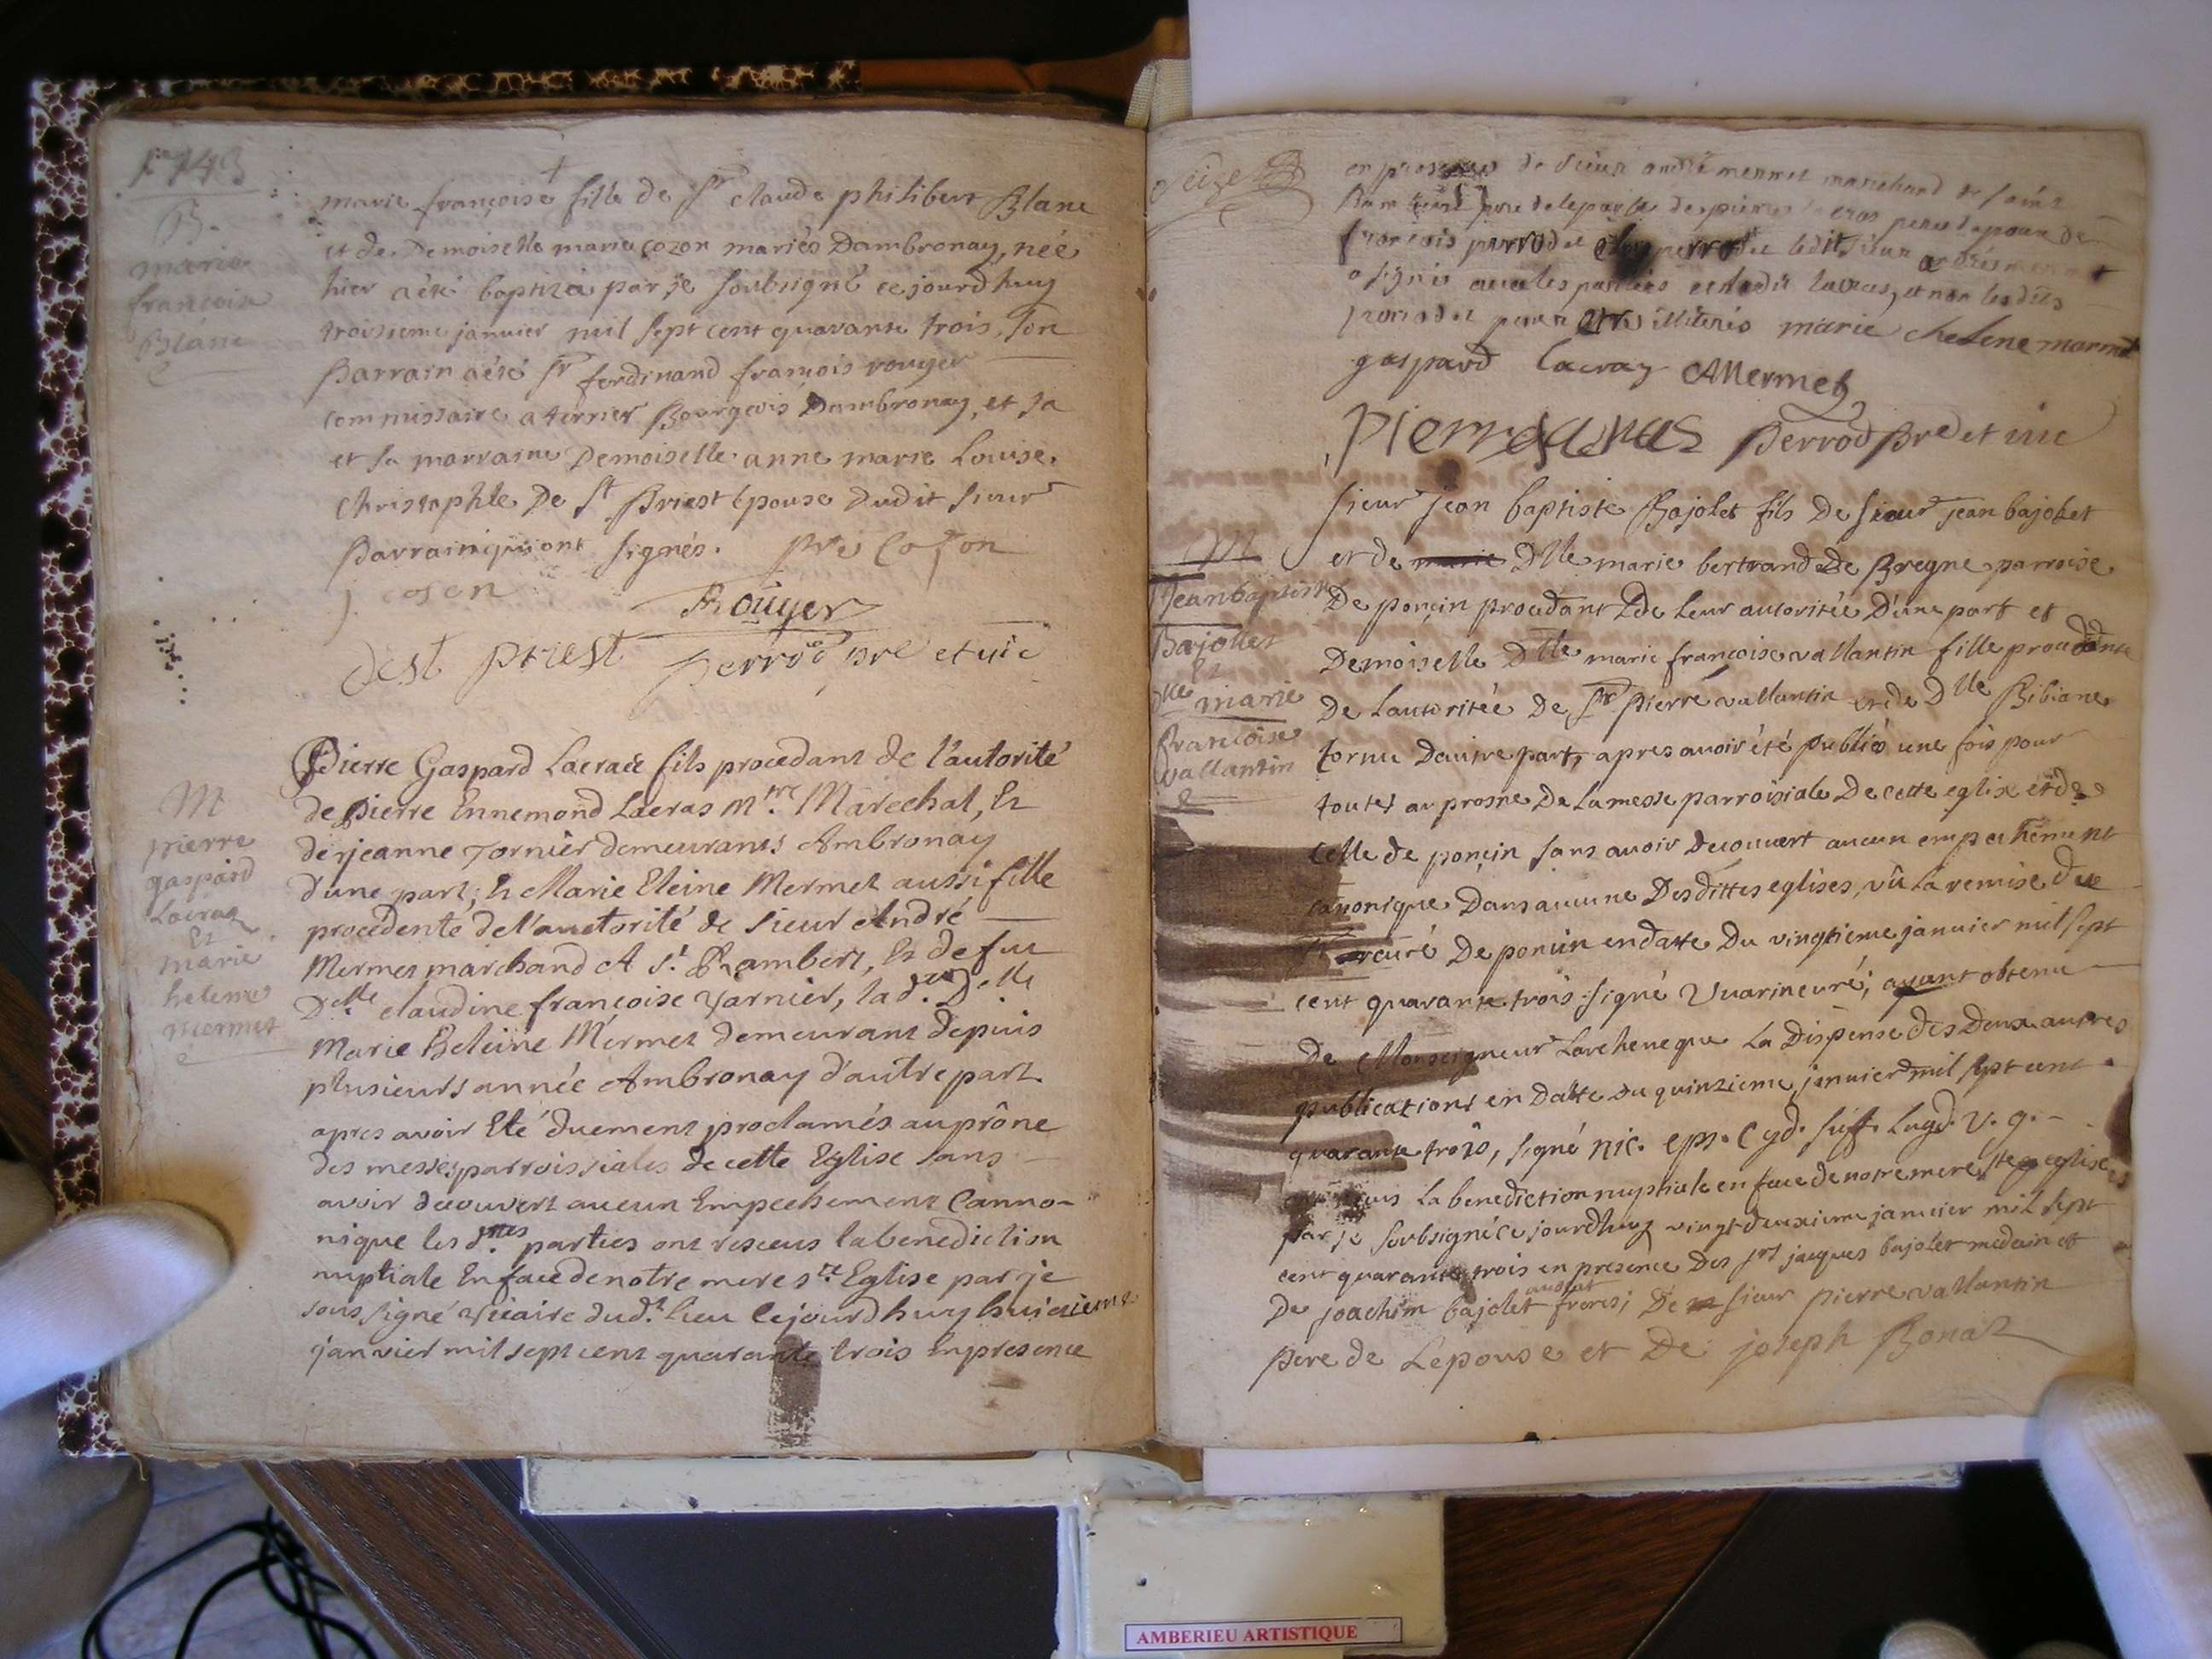 1743
B.
marie
francoise
Blanc
marie françoise fille de Sr claude philibert Blanc
et de Demoiselle marie cozon mariés Dambronay, née
hier aété baptizée par je soubsigné cejourdhuy
troisieme janvier mil sept cent quarante trois, son
parrain aété Sr ferdinand françois rouyer
commissaire a terrier Bourgeois Dambronay, et sa
et sa marraine Demoiselle anne marie Louise
christophle De St Priest épouse dudit sieur
parrain qui ont signés. pre Cozon
j cosen
Rouyer
dest priest perrod pre et vic
M
pierre
gaspard
Lacraz
Et
marie
helene
mermet
Pierre Gaspard Lacraz fils procedant de l'autorité
de pierre Ennemond Lacras Mtre Marechal, Et
de jeanne Tornier demeurants Ambronay
d'une part; Et Marie Eleine Mermet aussi fille
procedente de l'auctorité de sieur André
Mermet marchand A St Rambert, Et defue
Delle claudine françoise Varnier, lad. Delle
Marie Heleine Mermet demeurant depuis
plusieurs année Ambronay d'autre part
apres avoir Eté duement proclamés auprône
des messes parroissiales de cette Eglise sans
avoir decouvert aucun Empechement Canno-
nique les dttes parties ont resceus la benediction
nuptiale En face de notre mere ste Eglise par je
sous signé vicaire dud.t lieu Cejourdhuy huictieme
janvier mil sept cent quarante trois En presence
Seize
en presence de sieur andré mermet marchand de saint
Rambert pere de lepouse de pierre lacras pere de
françois perrodet perrodet ledit sieur andré mermet
a signé avec les parties et ledit lacras, et non lesdits
perrodet pour illiterés marie helene mermet
gaspard lacraz AMermet
Pierre lacras perrod pre et vic
M
Jean baptiste
Bajollet
Et
Dlle marie
françoise
vallantin
Sieur jean baptiste Bajolet fils De sieur jean bajolet
et de Dlle marie bertrand De Bregne parroise
De poncin procedant de leur autoritée D'une part et
Demoiselle Dlle marie francoise vallantin fille procedante
De lautoritée De Sr pierre vallantin et de Dlle Bibiane
tornu Dautre part, apres avoir été publiés une fois pour
toutes au prosne De la messe parroisiale De cette eglise et de
celle de poncin sans avoir decouvert aucun empechement
canonique Dans aucune Desdittes eglises, vû la remise du
Sr curé De poncin en datte Du vingtieme janvier mil sept
cent quarante trois signé Vuarin curé; ayant obtenu
De Monseigneur Larcheveque La Dispense des Deux autres
publications en Datte du quinzieme janvier mil sept cent
quarante trois, signé nic. eps. Cyd. suff. Lugd. v. g.
ont reçus la benediction nuptiale en face de notre mere ste eglise
par je soubsigné cejourdhuy vingt deuxieme janvier mil sept
cent quarante trois en presence Des srs jacques bajolet medecin et
De joachim bajolet avocat freres; De sieur pierre vallantin
pere de Lepouse et De joseph Bonaz
AMBERIEU ARTISTIQUE